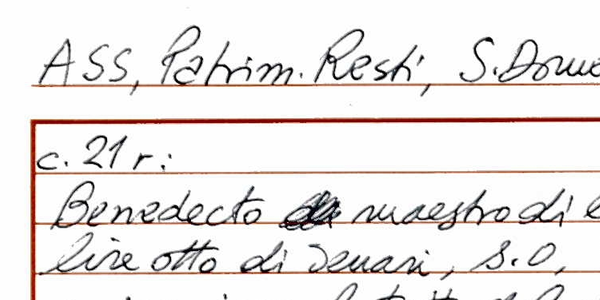 ASS, Patrim. Resti, S. Dome
c. 21 r:
Benedecto maestro di
lire otto di denari, s. 0,